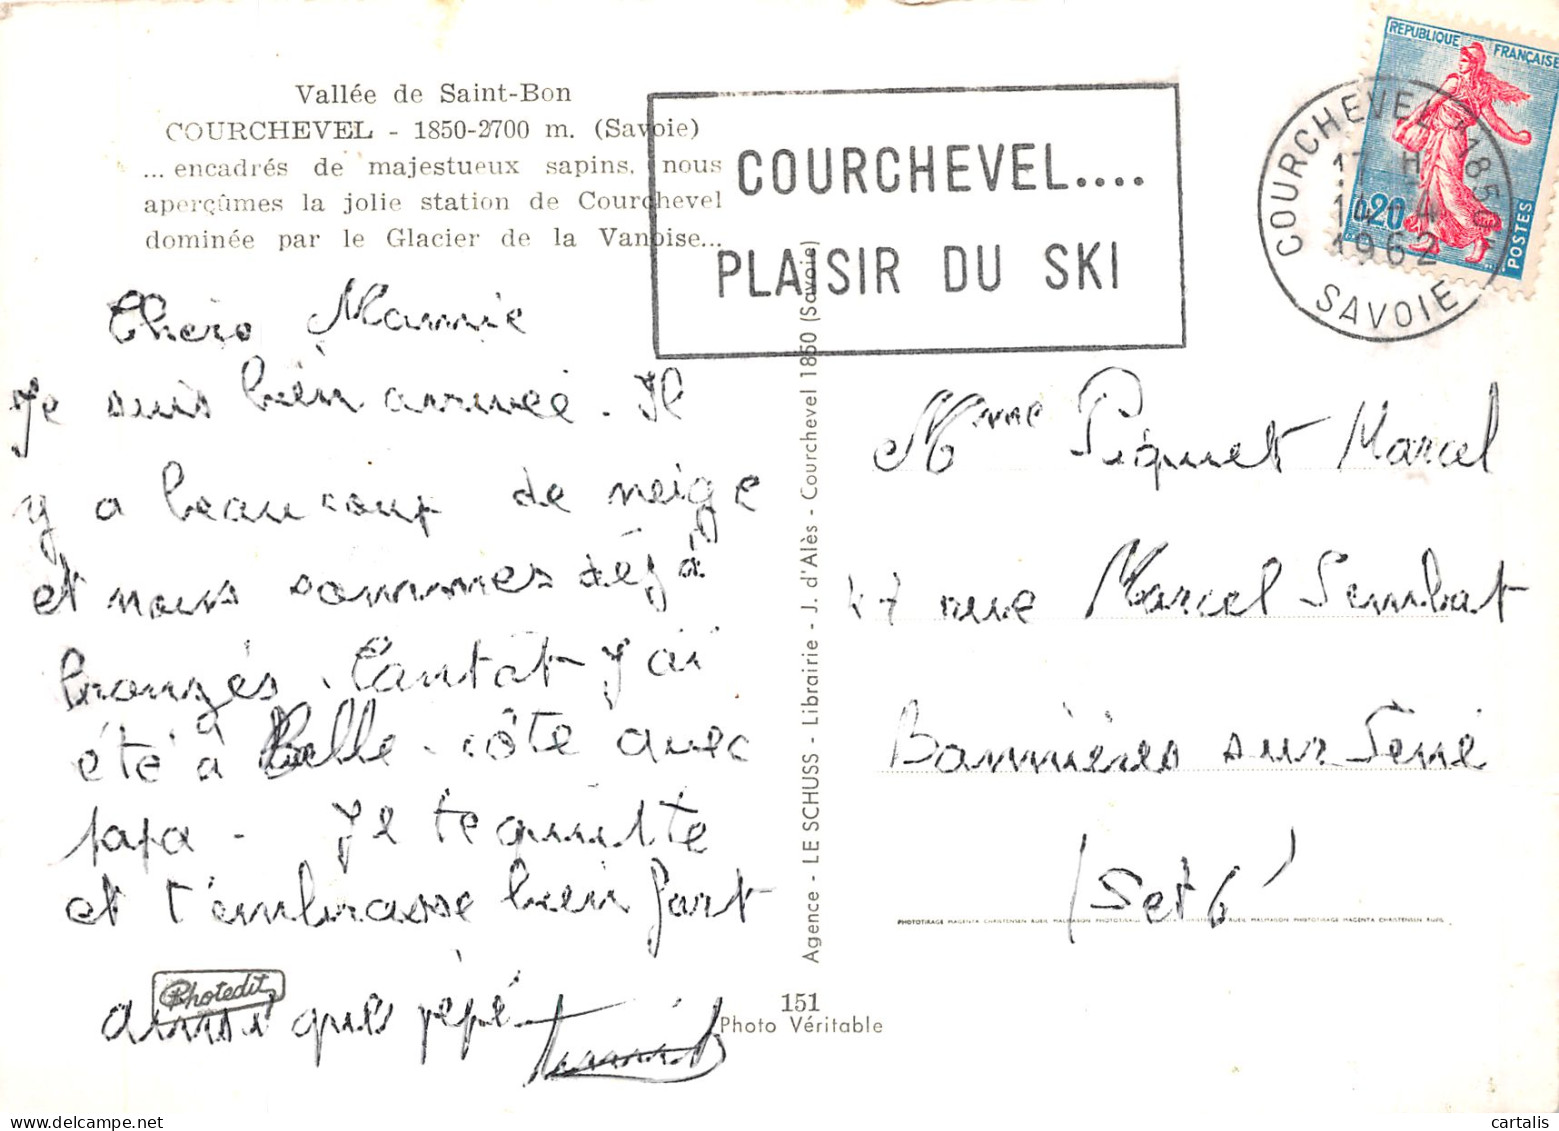 Vallée de Saint-Bon
COURCHEVEL - 1850-2700 m. (Savoie)
...encadrés de majestueux sapins, nous
aperçûmes la jolie station de Courchevel
dominée par le Glacier de la Vanoise...
COURCHEVEL....
PLAISIR DU SKI
REPUBLIQUE FRANÇAISE
0,20
POSTES
COURCHEVEL 1850
17 H
14-4
1962
SAVOIE
Mamie
Je suis bien arrivée. Il
y a beaucoup de neige
et nous sommes déjà
bronzés. Tantôt j'ai
été à Belle-côte avec
papa - Je te quitte
et t'embrasse bien fort
ainsi que pépé
Mme Piquet Marcel
47 rue Marcel Sembat
sur Seine
(Set O)
Agence - LE SCHUSS - Librairie - J. d'Alès - Courchevel 1850 (Savoie)
Photedit
151
Photo Véritable
PHOTOTIRAGE MAGENTA CHRISTENSEN RUEIL MALMAISON
cartalis